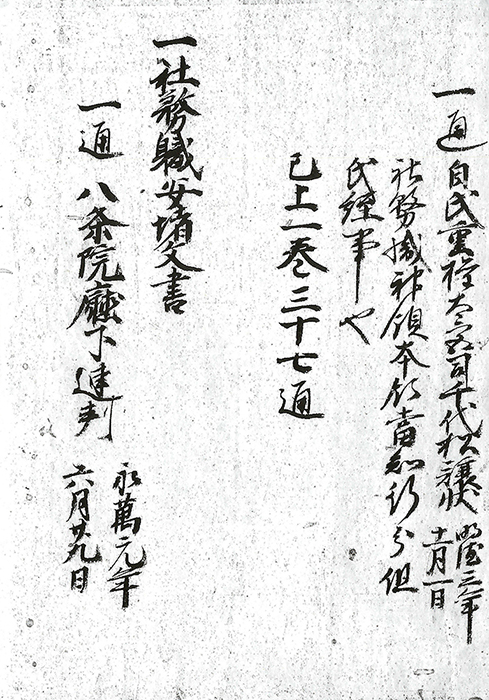 一通 自氏重大宮司千代松譲状
三年
月一日
社務職神領本領當知行分但
氏經事也
已上一巻三十七通
一社務職安堵文書
一通 八条院廳下連判
永萬元年
六月廿九日